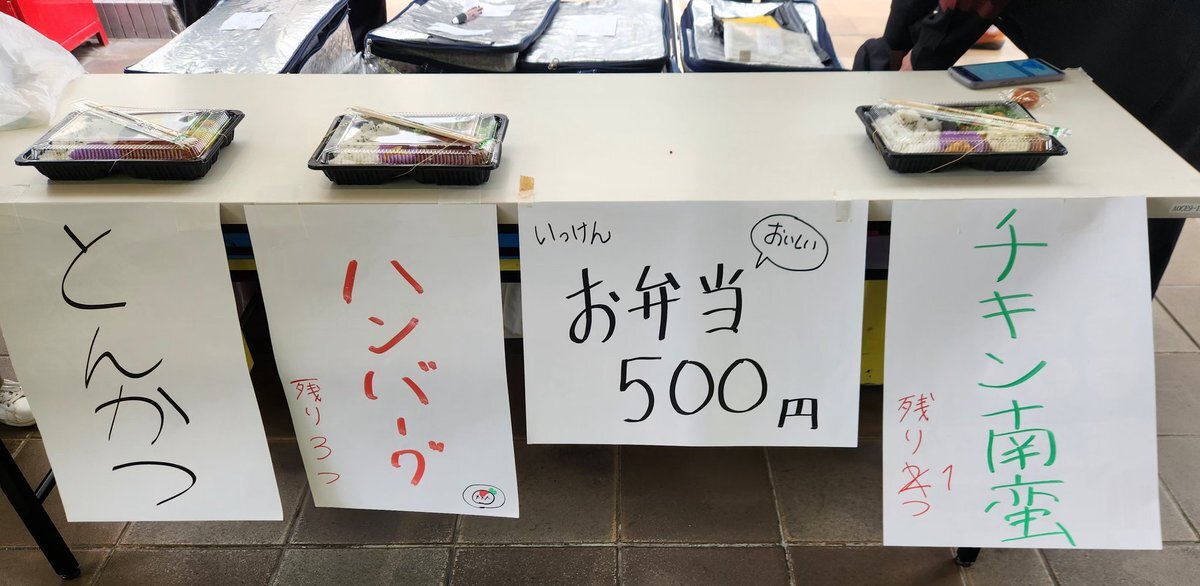 とんかつ
ハンバーグ
残り3つ
いっけん
おいしい
お弁当
500円
チキン南蛮
残り1つ